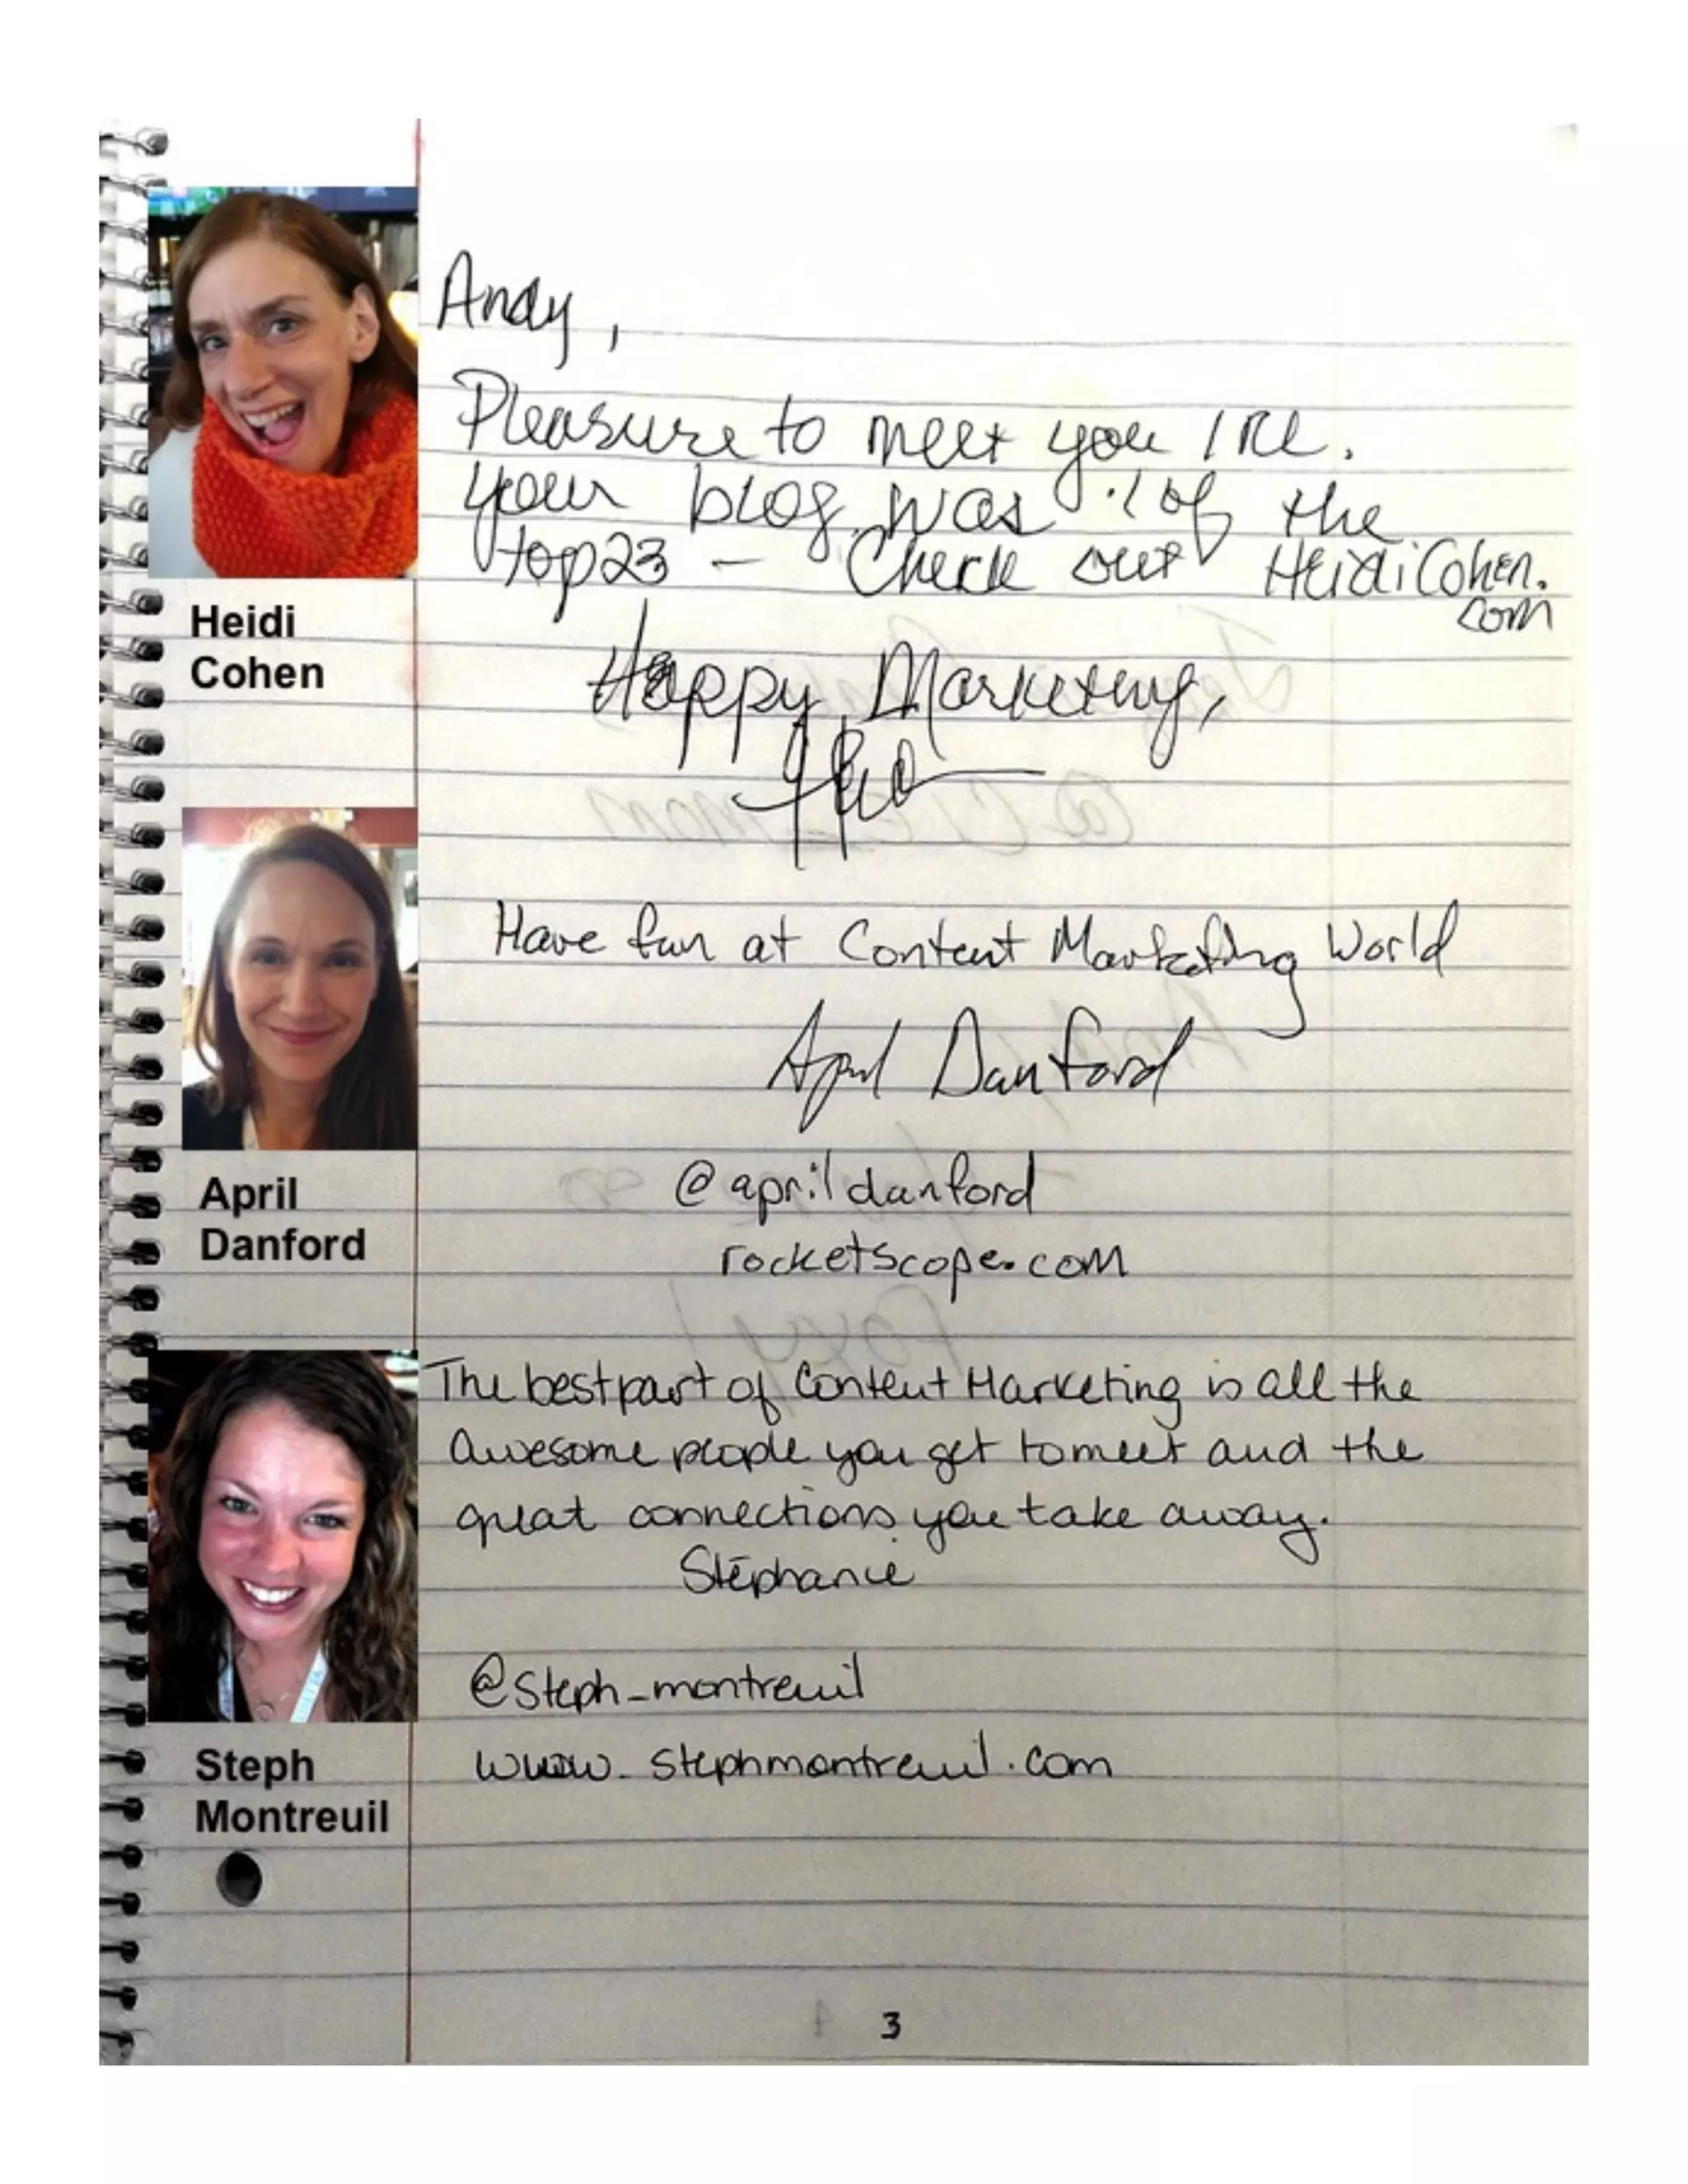 Andy,
Pleasure to meet you IRL.
your blog was 1 of the
top 23 - Check out HeidiCohen.
com
Heidi
Cohen
Happy Marketing,
Have fun at Content Marketing World
April Danford
@aprildanford
rocketscope.com
April
Danford
The best part of Content Marketing is all the
awesome people you get to meet and the
great connections you take away.
Stéphanie
@steph_montreuil
www.stephmontreuil.com
Steph
Montreuil
3